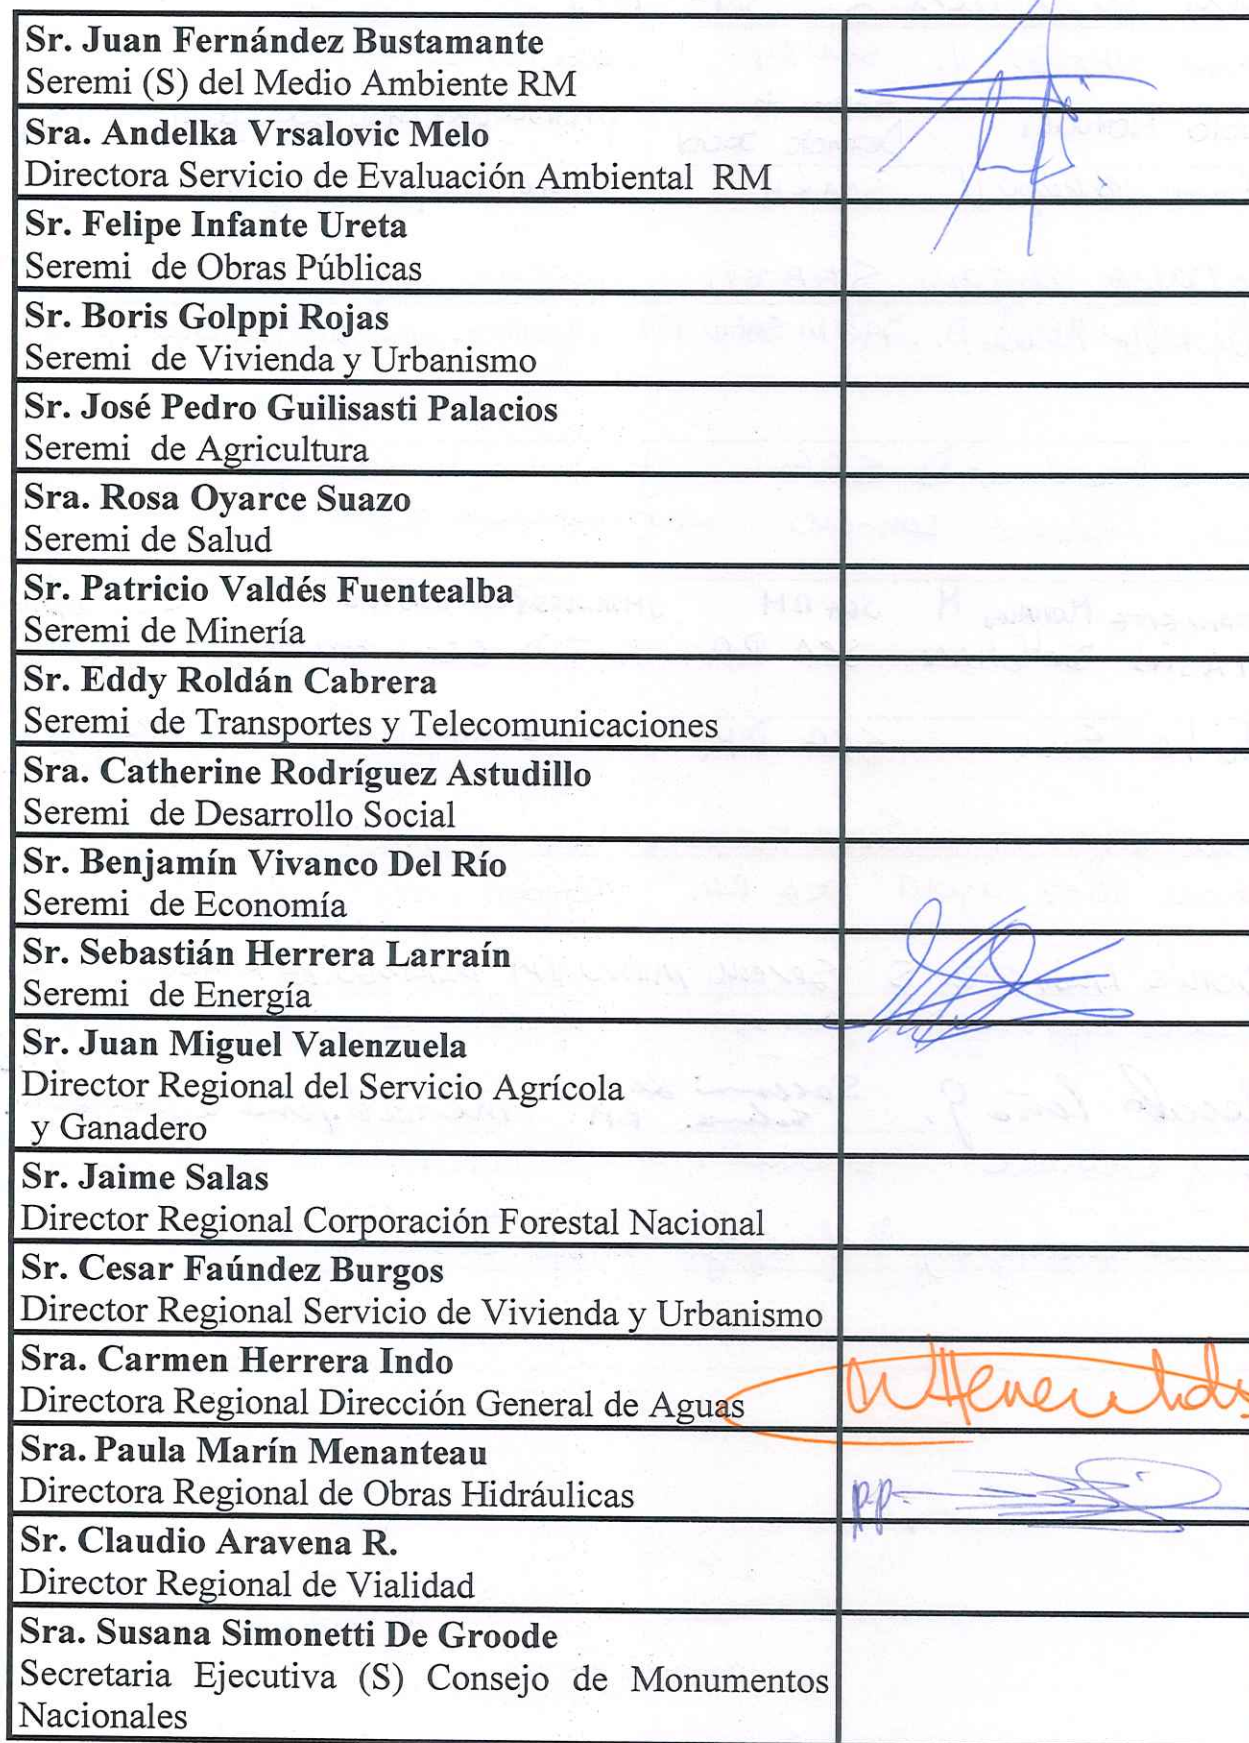 Sr. Juan Fernández Bustamante
Seremi (S) del Medio Ambiente RM
Sra. Andelka Vrsalovic Melo
Directora Servicio de Evaluación Ambiental RM
Sr. Felipe Infante Ureta
Seremi de Obras Públicas
Sr. Boris Golppi Rojas
Seremi de Vivienda y Urbanismo
Sr. José Pedro Guilisasti Palacios
Seremi de Agricultura
Sra. Rosa Oyarce Suazo
Seremi de Salud
Sr. Patricio Valdés Fuentealba
Seremi de Minería
Sr. Eddy Roldán Cabrera
Seremi de Transportes y Telecomunicaciones
Sra. Catherine Rodríguez Astudillo
Seremi de Desarrollo Social
Sr. Benjamín Vivanco Del Río
Seremi de Economía
Sr. Sebastián Herrera Larraín
Seremi de Energía
Sr. Juan Miguel Valenzuela
Director Regional del Servicio Agrícola
y Ganadero
Sr. Jaime Salas
Director Regional Corporación Forestal Nacional
Sr. Cesar Faúndez Burgos
Director Regional Servicio de Vivienda y Urbanismo
Sra. Carmen Herrera Indo
Directora Regional Dirección General de Aguas
Sra. Paula Marín Menanteau
Directora Regional de Obras Hidráulicas
pp.
Sr. Claudio Aravena R.
Director Regional de Vialidad
Sra. Susana Simonetti De Groode
Secretaria Ejecutiva (S) Consejo de Monumentos
Nacionales